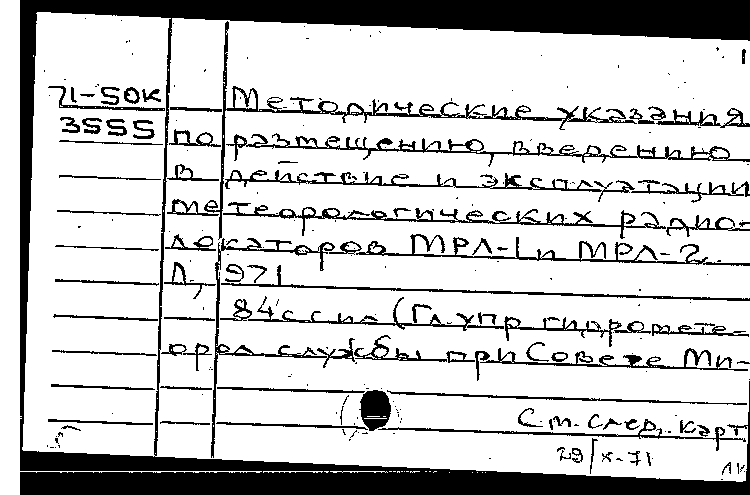 1
71-50К Методические указания
3555 по размещению, введению
в действие и эксплуатации
метеорологических радио-
локаторов МРЛ-1 и МРЛ-2.
Л, 1971
84 с с ил (Гл. упр гидромете-
орол службы при Совете Ми-
См. след. карт.
29/X-71